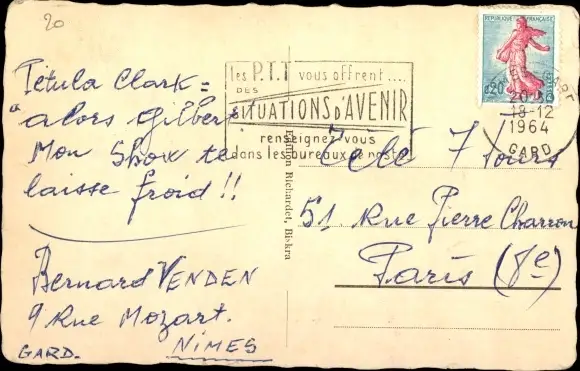 20
Pétula Clark =
"alors Gilbert
Mon Show te
laisse froid !!
Bernard VENDEN
9 Rue Mozart.
NIMES
GARD.
les P.T.T vous offrent....
DES
SITUATIONS D'AVENIR
renseignez-vous
dans les bureaux de poste
REPUBLIQUE FRANÇAISE
0,20
18-12
1964
GARD
Edition Richardet, Biskra
Télé 7 Jours
51 Rue Pierre Charron
Paris (8e)